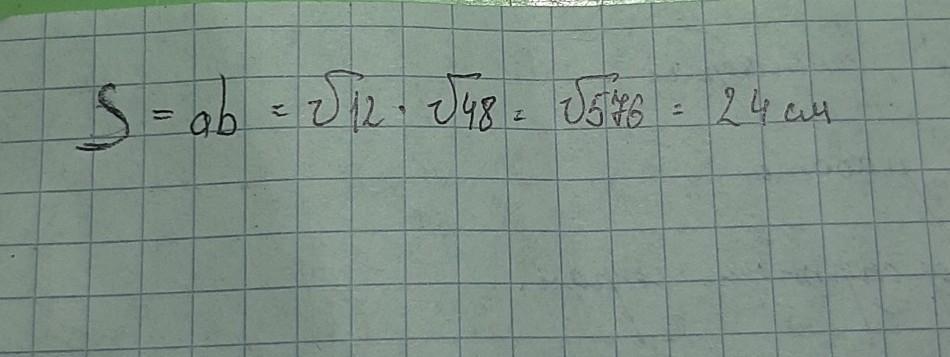 S = ab = √12 · √48 = √576 = 24 см